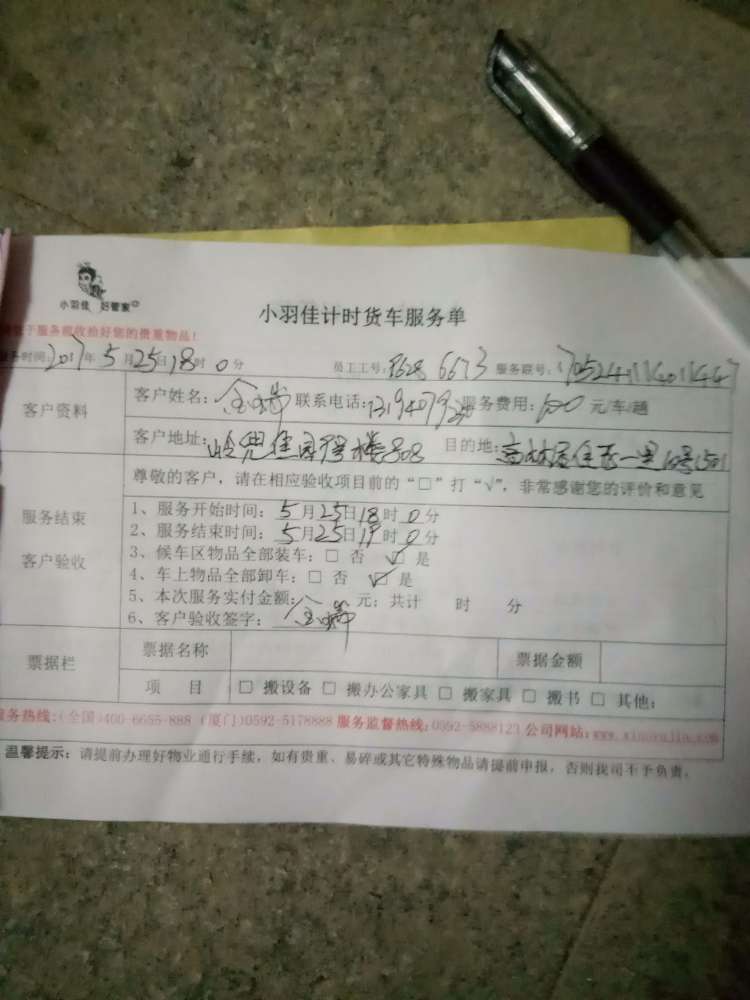 小羽佳 好管家
小羽佳计时货车服务单
下服务前收拾好您的贵重物品！
服务时间：2017年5月25日18时0分 员工工号： 6673 服务联号：
客户资料
客户姓名：金瑞 联系电话： 服务费用： 元/车/趟
客户地址： 808 目的地：
尊敬的客户，请在相应验收项目前的“□”打“√”，非常感谢您的评价和意见
服务结束
客户验收
1、服务开始时间：5月25日18时0分
2、服务结束时间：5月25日19时0分
3、候车区物品全部装车：□ 否 ☑ 是
4、车上物品全部卸车：□ 否 ☑ 是
5、本次服务实付金额： 元；共计 时 分
6、客户验收签字：金瑞
票据栏
票据名称 票据金额
项 目 □ 搬设备 □ 搬办公家具 □ 搬家具 □ 搬书 □ 其他：
服务热线：（全国）400-6655-888（厦门）0592-5178888 服务监督热线：0592-5888123 公司网站：www.xiaoyujia.com
温馨提示：请提前办理好物业通行手续，如有贵重、易碎或其它特殊物品请提前申报，否则我司不予负责。